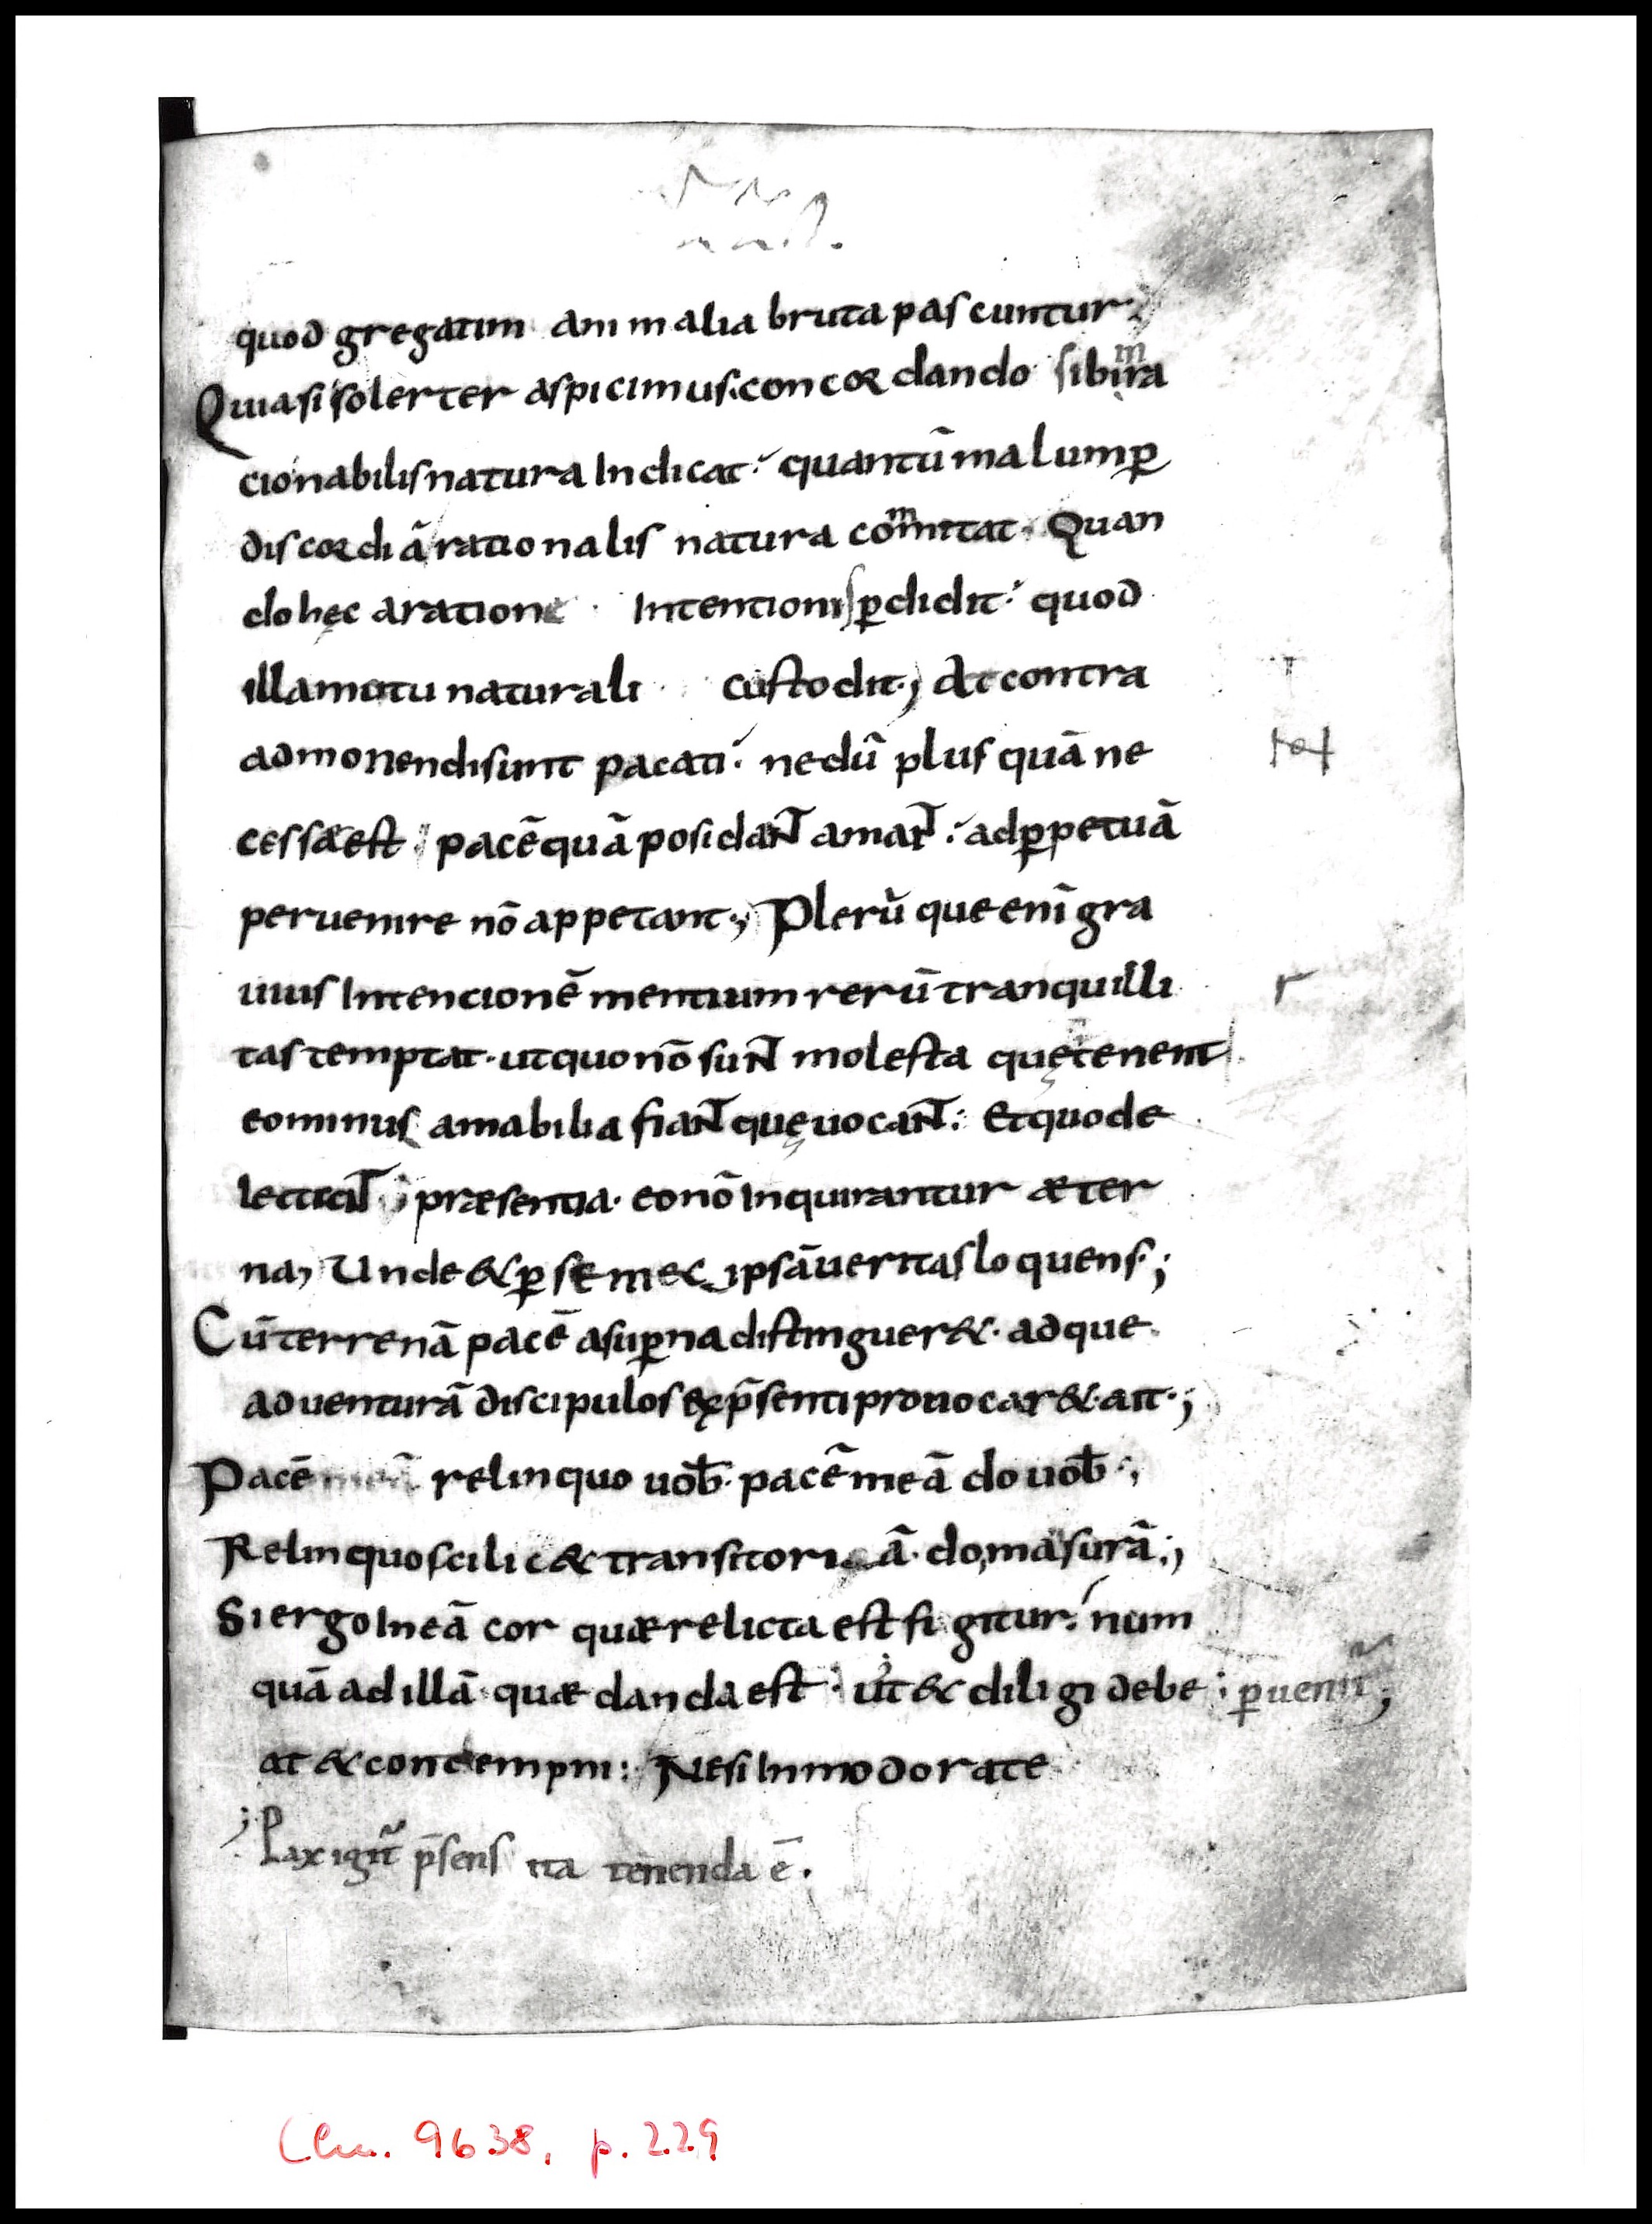 quod gregatim animalia bruta pascuntur.
Quia si solerter aspicimus. concordando sibi mira
cionabilis natura Indicat. quantū malum ꝑ
discordiā rationalis natura com mitat. Quan
do hęc a ratione Intentionis ꝑdidit. quod
illa motu naturali custodit; At contra
admonendi sunt pacati. ne dū plus quā ne
cessæ est pacē quā posidant amant. ad ꝑpetuā
peruenire nō appetant; Plerū que enī gra
uius Intencionē mentium rerū tranquilli
tas temptat. ut quo nō sunt molesta quę tenent
eo minus amabilia fiant quę uocant. Et quo de
lectant præsentia. eo nō Inquirantur æter
na, Unde & ꝑ semet ipsā ueritas loquens;
Cū terrenā pacē a suꝑna distinguer&. ad que
ad uenturā discipulos ex p̄senti prouocar&. ait;
Pacē meā relinquo uob̄. pacē meā do uob̄;
Relinquo scilic& transitoriā. do, māsurā;
Si ergo In eā cor quæ relicta est figitur. num
quā ad illā quæ danda est. ut & diligi debe ꝑuenit̄;
at & contempni: Ne si Inmodorate
; Pax igit̄ p̄sens ita tenenda ē.
r
Clm. 9638, p. 229